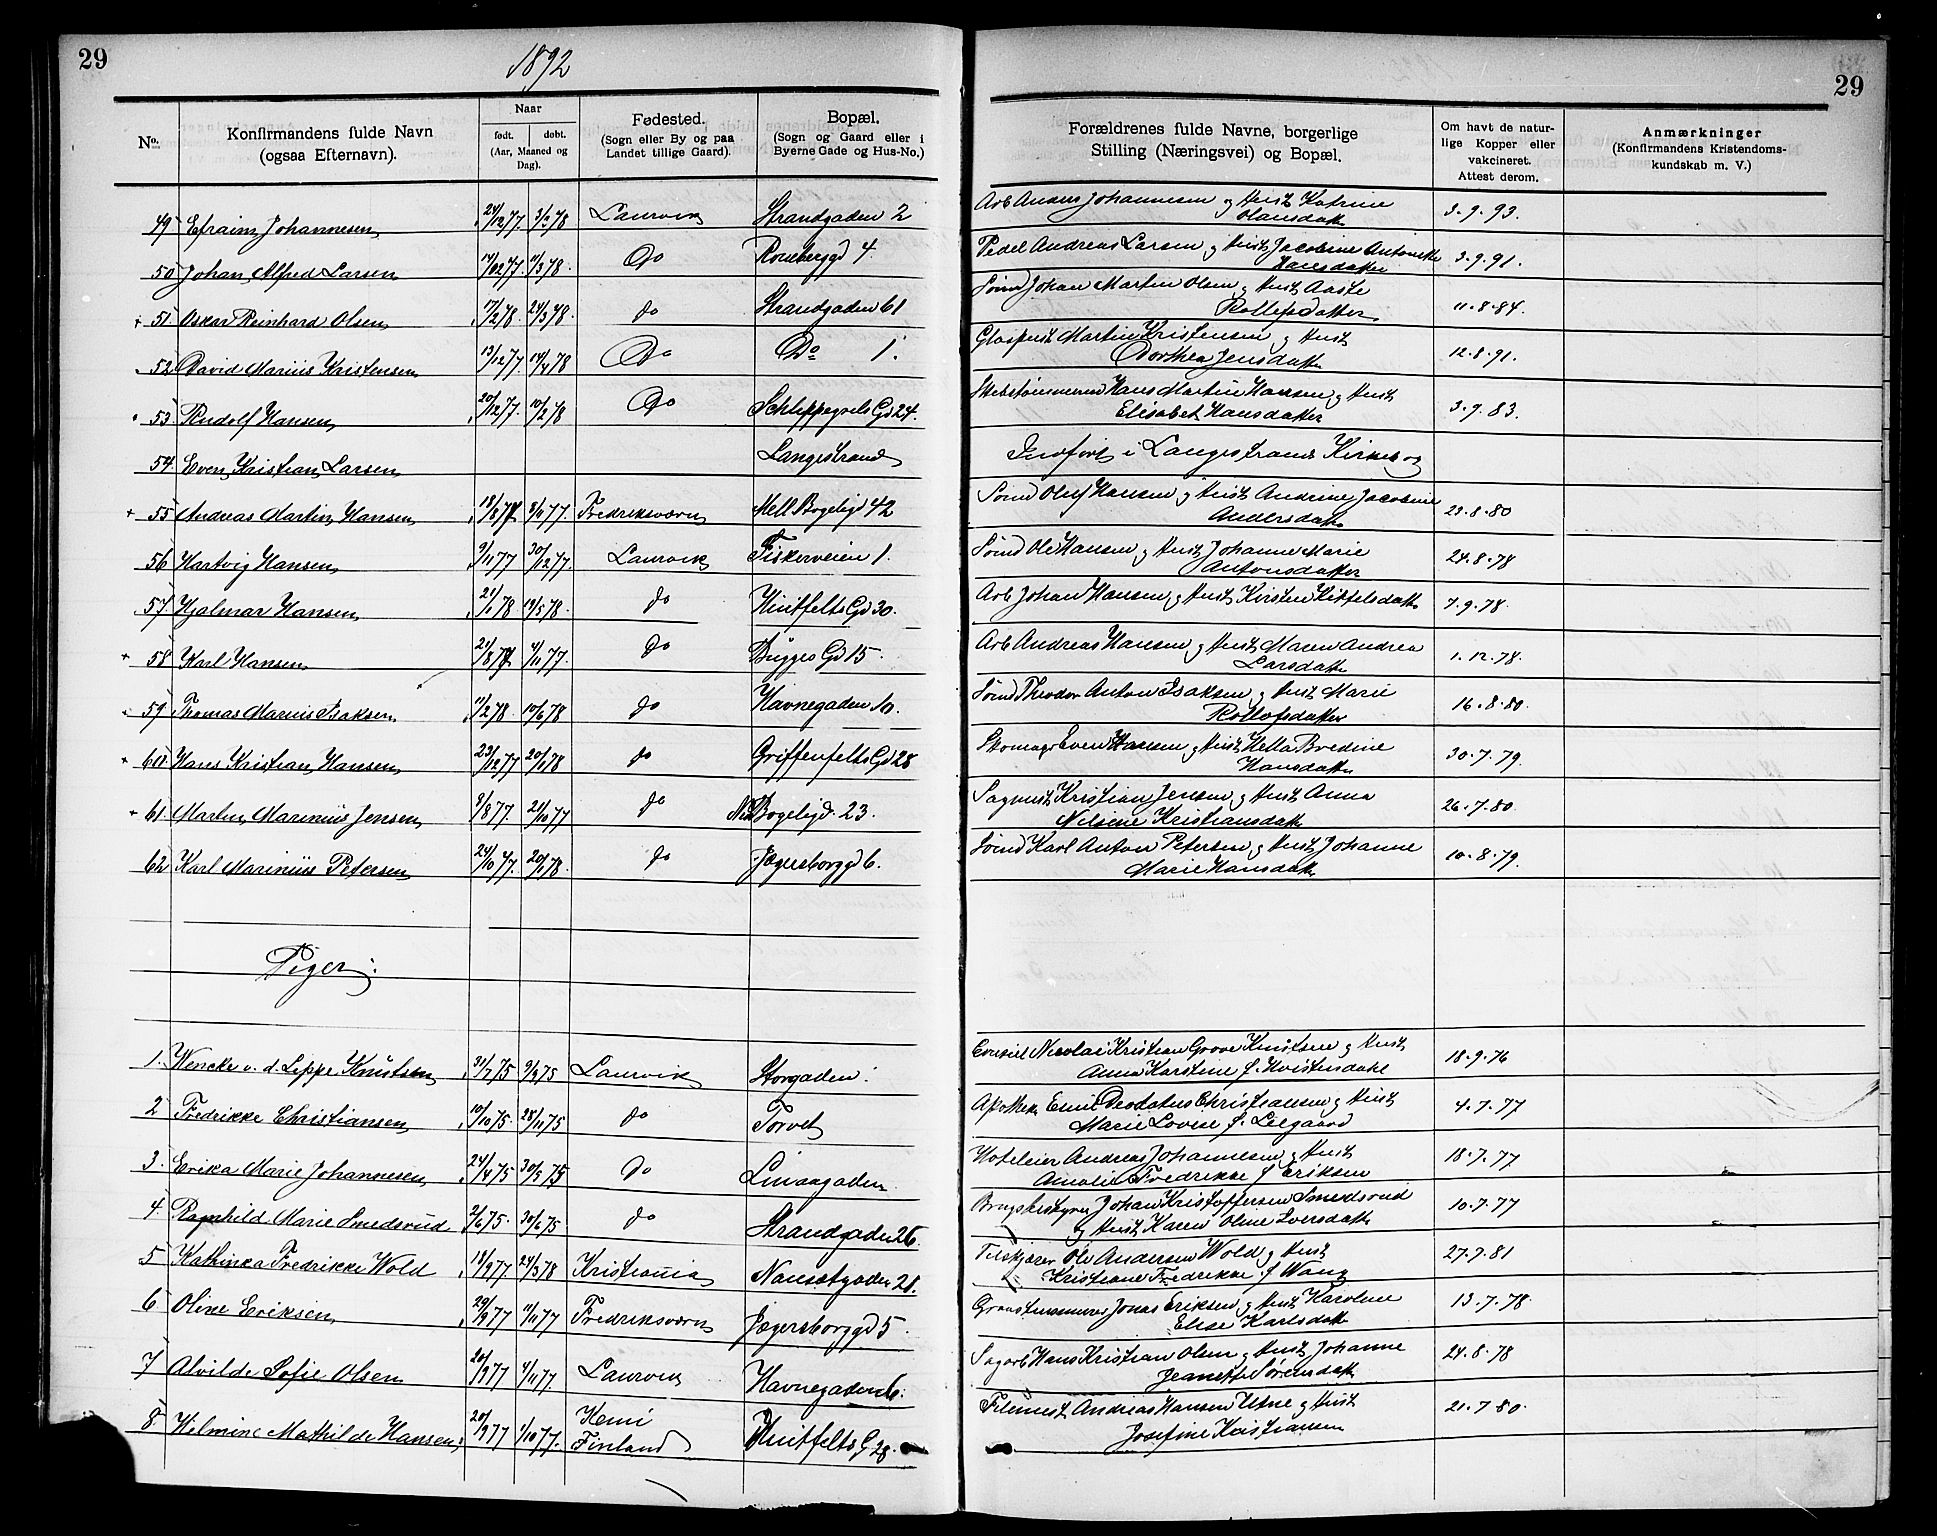 29
1892
29
No.
Konfirmandens fulde Navn
(ogsaa Efternavn).
Naar
født. døbt.
(Aar, Maaned og
Dag).
Fødested.
(Sogn eller By og paa
Landet tillige Gaard).
Bopæl.
(Sogn og Gaard eller i
Byerne Gade og Hus-No.)
Forældrenes fulde Navne, borgerlige
Stilling (Næringsvei) og Bopæl.
Om havt de natur-
lige Kopper eller
vakcineret.
Attest derom.
Anmærkninger
(Konfirmandens Kristendoms-
kundskab m. V.)
49 Efraim Johannesen 24/12 77 3/3 78 Laurvik Strandgaden 2 Arb Anders Johannesen og Hust Katrine 3.9.93.
Olausdatt
50 Johan Alfred Larsen 11/3 78 Do 4. Pedel Andreas Larsen og Hust Jacobine 3.9.91.
Hansdatter
51. Oskar Reinhard Olsen 17/2 78 24/3 78 do Strandgaden 61 Sømd Johan Martin Olsen og Hust Aaste 11.8.84.
Rollefsdatter
52 David Marius Kristensen 13/12 77 14/4 78 Do Do 1. Martin Kristensen og Hust 12.8.91.
Dorthea Jensdatt
53. Rudolf Hansen 20/12 77. 10/2 78 Do Schleppegrels Gd 24. Skibstømmermd Hans Martin Hansen og Hust 3.9.83.
Elisabet Hansdatter
54. Even Kristian Larsen Langestrand Indført i Langestrands Kirkebog
55 Andreas Martin Hansen 18/8 77 77. Fredriksværn Mell Bogeligd 42 Sømd Oluf Hansen og Hust Andrine Jacobine 22.8.80
Andersdatt
56 Hartvig Hansen 9/11 77 30/12 77. Laurvik Fiskerveien 1. Sømd Ole Hansen og Hust Johanne Marie 24.8.78
Antonsdatter
57 Hjalmar Hansen 21/1 78 19/5 78. do Huitfelts Gd 30. Arb Johan Hansen og Hust Kirsten Kittelsdatt 7.9.78.
58 Karl Hansen 21/8 77 4/11 77. do Bugges Gd 15. Arb Andreas Hansen og Hust Maren Andrea 1.12.78.
Larsdatt
59 Thomas Marius Isaksen 11/2 78. 10/6 78 do Havnegaden 10. Sømd Theodor Anton Isaksen og Hust Marie 16.8.80.
Rollofsdatter
60 Hans Kristian Hansen 23/12 77 20/1 78 do Griffenfelts Gd 28 Skomagr Even Hansen og Hust Hella Bredine 30.7.79.
Hansdatt
61. Martin Marinius Jensen 9/8 77. 21/10 77 do Ned Bogeligd. 23. Sagmest Kristian Jensen og Hust Anna 26.7.80.
Nilsine Kristiansdatt
62 Karl Marinius Petersen 24/10 77. 20/1 78 do Jægersborggd 6. Sømd Karl Anton Petersen og Hust Johanne 10.8.79.
Marie Hansdatt
Piger.
1. Wencke v. d. Lippe Knudtsen 31/7 75 9/9 75 Laurvik Storgaden. Consul Nicolai Kristian Grove Knudtsen og Hust 18.9.76
Anna Karstine f. Kvistendahl
2 Fredrikke Christiansen 10/10 75. 28/11 75 do Torvet Apothek Emil Deodatus Christiansen og Hust 4.7.77
Marie Lovise f. Leegaard
3. Erika Marie Johannesen 24/4 75 30/5 75 Do Linaagaden Hoteleier Andreas Johannesen og Hust 18.7.77
Amalie Fredrikke f Eriksen
4. Ragnhild Marie Smedsrud 2/6 75. 30/6 75 do Strandgaden 26. Brugsbestyrer Johan Kristoffersen Smedsrud 10.7.77
og Hust Karen Oline Iversdatt
5 Kathinka Fredrikke Wold 18/9 77 24/3 78 Kristiania Nansetgaden 28. Tilskjærer Ole Andersen Wold og Hust 27.7.81
Kristiane Fredrikke f Wang
6 Oline Eriksen 29/9 77 11/11 77 Fredriksværn Jægersborggd 5. Grovtømmermd Jonas Eriksen og Hust Karoline 13.7.78.
Elise Karlsdatt
7 Alvilde Sofie Olsen 20/9 77 4/11 77. Laurvik Havnegaden 6. Sagarb Hans Kristian Olsen og Hust Johanne 24.8.78
Jeanette Sørensdatt
8. Hilmine Mathilde Hansen. 20/9 77 1/10 77. Kemi Huitfelts G 28. Andreas Hansen og Hust 21.7.80.
Finland Josefine Kristiansen